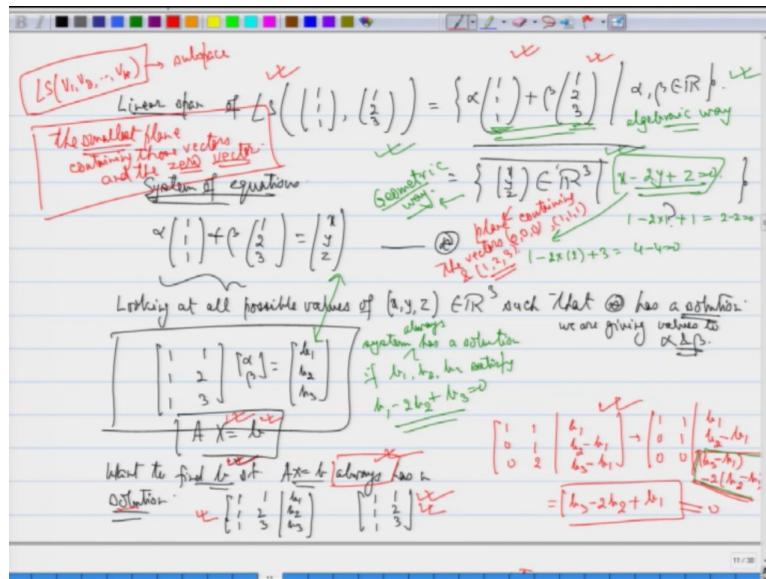 B I
LS(V₁, V₂, ..., Vₖ) → subspace
Linear span of LS((1 1 1), (1 2 3)) = { α(1 1 1) + β(1 2 3) | α, β ∈ ℝ }.
algebraic way
the smallest plane
containing those vectors
and the zero vector.
Geometric
way.
= { (x y z) ∈ ℝ³ | x - 2y + z = 0 }
System of equations
1 - 2×1 + 1 = 2-2=0
?
plane containing
the vectors (0,0,0), (1,1,1)
& (1,2,3)
1 - 2×(2) + 3 = 4-4=0
α(1 1 1) + β(1 2 3) = (x y z) —
Looking at all possible values of (x,y,z) ∈ ℝ³ such that has a solution.
we are giving values to
α & β.
[1 1; 1 2; 1 3] [α β] = [b₁ b₂ b₃]
always
system has a solution
if b₁, b₂, b₃ satisfy
b₁ - 2b₂ + b₃ = 0
A X = b
Want to find b st AX = b always has a
solution.
[1 1 | b₁; 1 2 | b₂; 1 3 | b₃] [1 1; 1 2; 1 3]
[1 1 | b₁; 0 1 | b₂-b₁; 0 2 | b₃-b₁] → [1 1 | b₁; 0 1 | b₂-b₁; 0 0 | (b₃-b₁)
-2(b₂-b₁)
= b₃ - 2b₂ + b₁ = 0
11 / 30